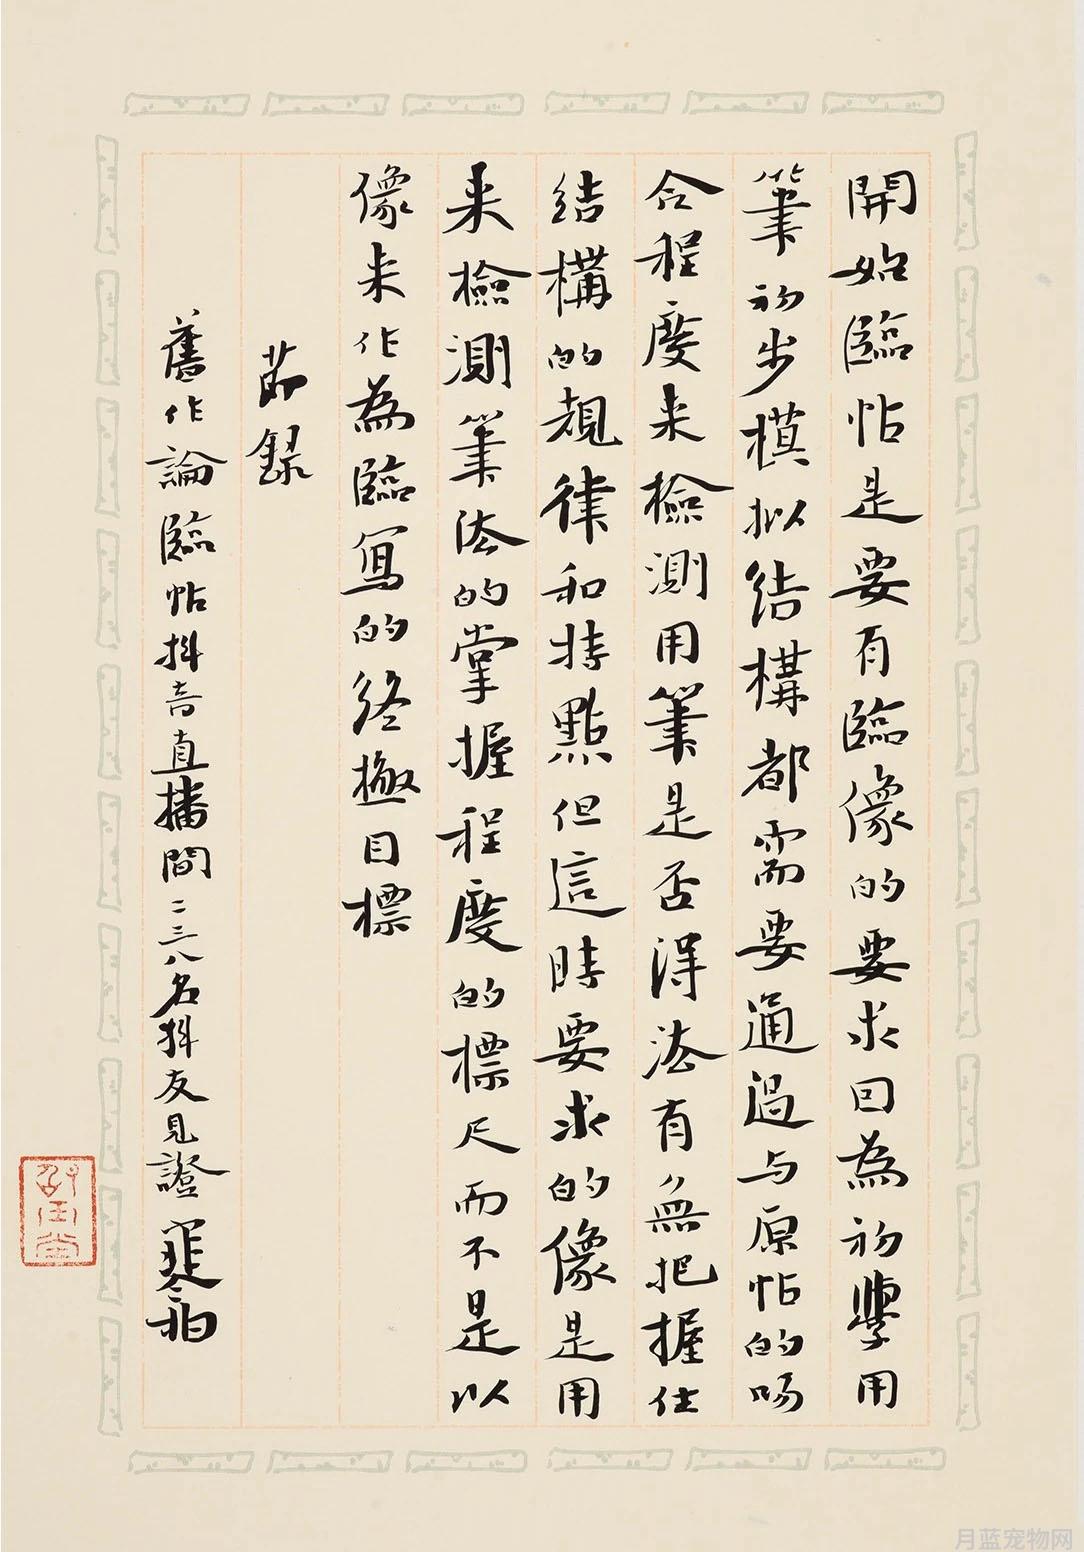 開始臨帖是要有臨像的要求因為初學用
筆初步模拟结構都需要通過与原帖的吻
合程度来檢測用筆是否得法有無把握住
结構的規律和特點但這時要求的像是用
来檢測筆法的掌握程度的標尺而不是以
像来作為臨寫的终極目標
節録
舊作論臨帖抖音直播間二三八名抖友見證
月蓝宠物网